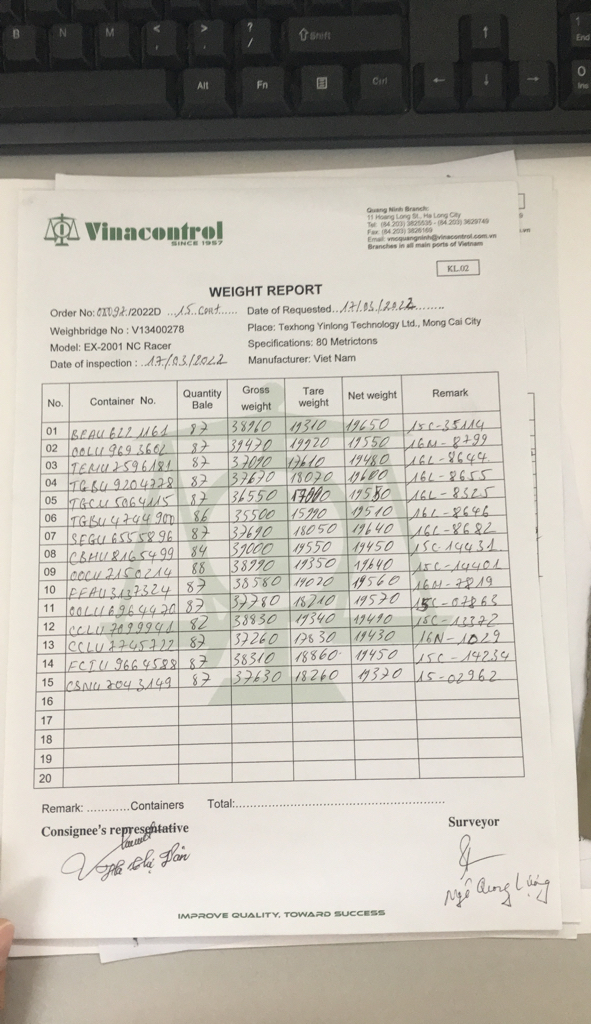 B N M < , > . ? / Shift
Alt Fn Ctrl
1 End
0 Ins
Vinacontrol
SINCE 1957
Quang Ninh Branch:
11 Hoang Long St., Ha Long City
Tel: (84.203) 3825535 - (84.203) 3829749
Fax: (84.203) 3826169
Email: vncquangninh@vinacontrol.com.vn
Branches in all main ports of Vietnam
KL.02
WEIGHT REPORT
Order No: /2022D ..15 cont..... Date of Requested...17/03/2022........
Weighbridge No : V13400278 Place: Texhong Yinlong Technology Ltd., Mong Cai City
Model: EX-2001 NC Racer Specifications: 80 Metrictons
Date of inspection : .17/03/2022 Manufacturer: Viet Nam
No. Container No. Quantity Bale Gross weight Tare weight Net weight Remark
01 BEAU 622 1161 87 38960 19310 19650 15C-35114
02 OOLU 969 3602 87 39470 19920 19550 16M-8799
03 TEMU 7596181 87 37090 17610 19480 16L-8644
04 TGBU 9204778 87 37670 18070 19600 16L-8655
05 TGCU 5064115 87 36550 19580 16L-8325
06 TGBU 4744900 86 35500 15990 19510 16L-8646
07 SEGU 6555896 87 37690 18050 19640 16L-8682
08 CBHU 8165499 84 39000 19550 19450 15C-14431
09 OOCU 7150214 88 38990 19350 19640 15C-14401
10 FFAU3137324 87 38580 19020 19560 16M-7819
11 OOLU6964470 87 37780 18210 19570 15C-07863
12 CCLU 7099941 82 38830 19340 19490 15C-13372
13 CCLU 7745722 87 37260 17830 19430 16N-1029
14 FCIU 9664588 87 38310 18860 19450 15C-14234
15 CSNU 7043149 87 37630 18260 19370 15-02962
16
17
18
19
20
Remark: ............Containers Total:......................................................
Consignee's representative Surveyor
Ngô Quang Lượng
IMPROVE QUALITY, TOWARD SUCCESS